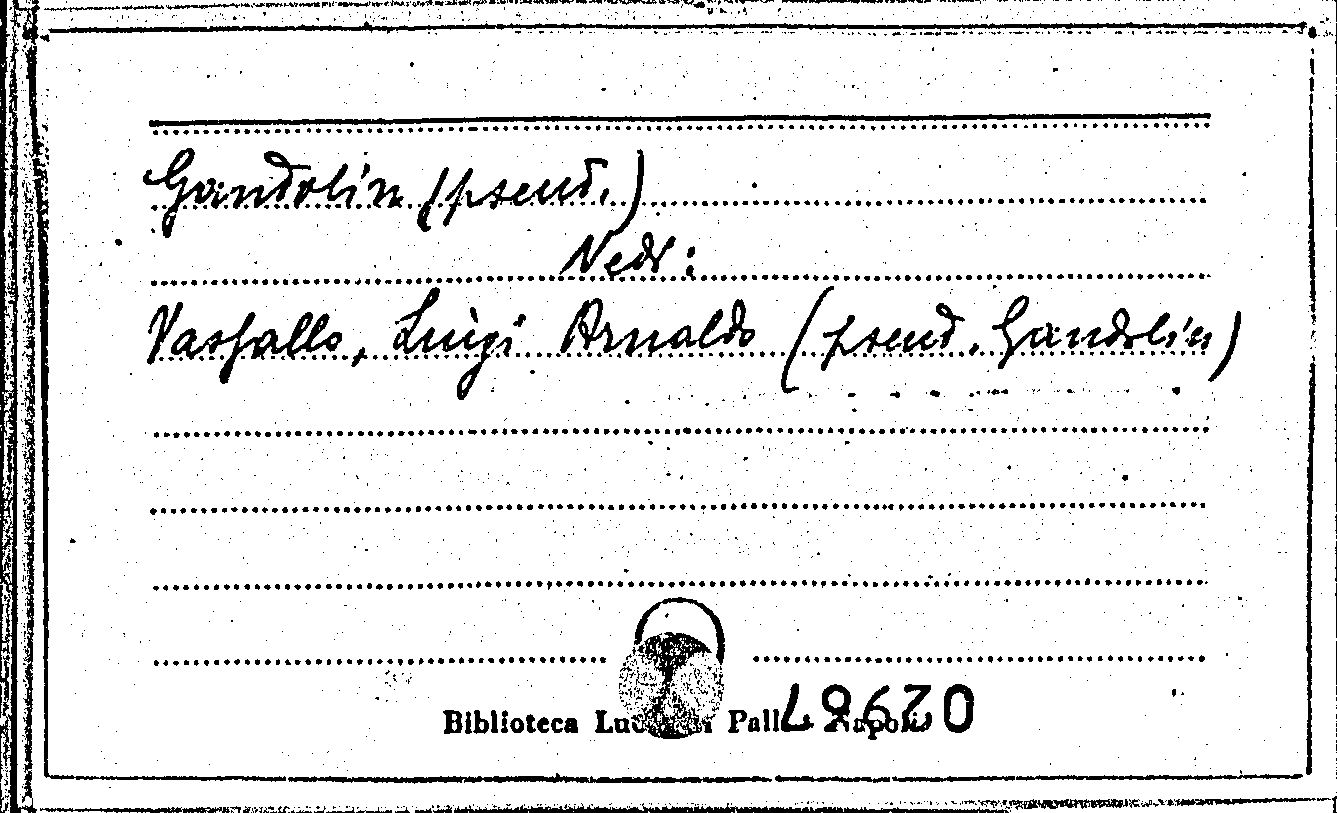 Gandolin (pseud.)
Vedi:
Vassallo, Luigi Arnaldo (pseud. Gandolin)
Biblioteca Palli - Napoli